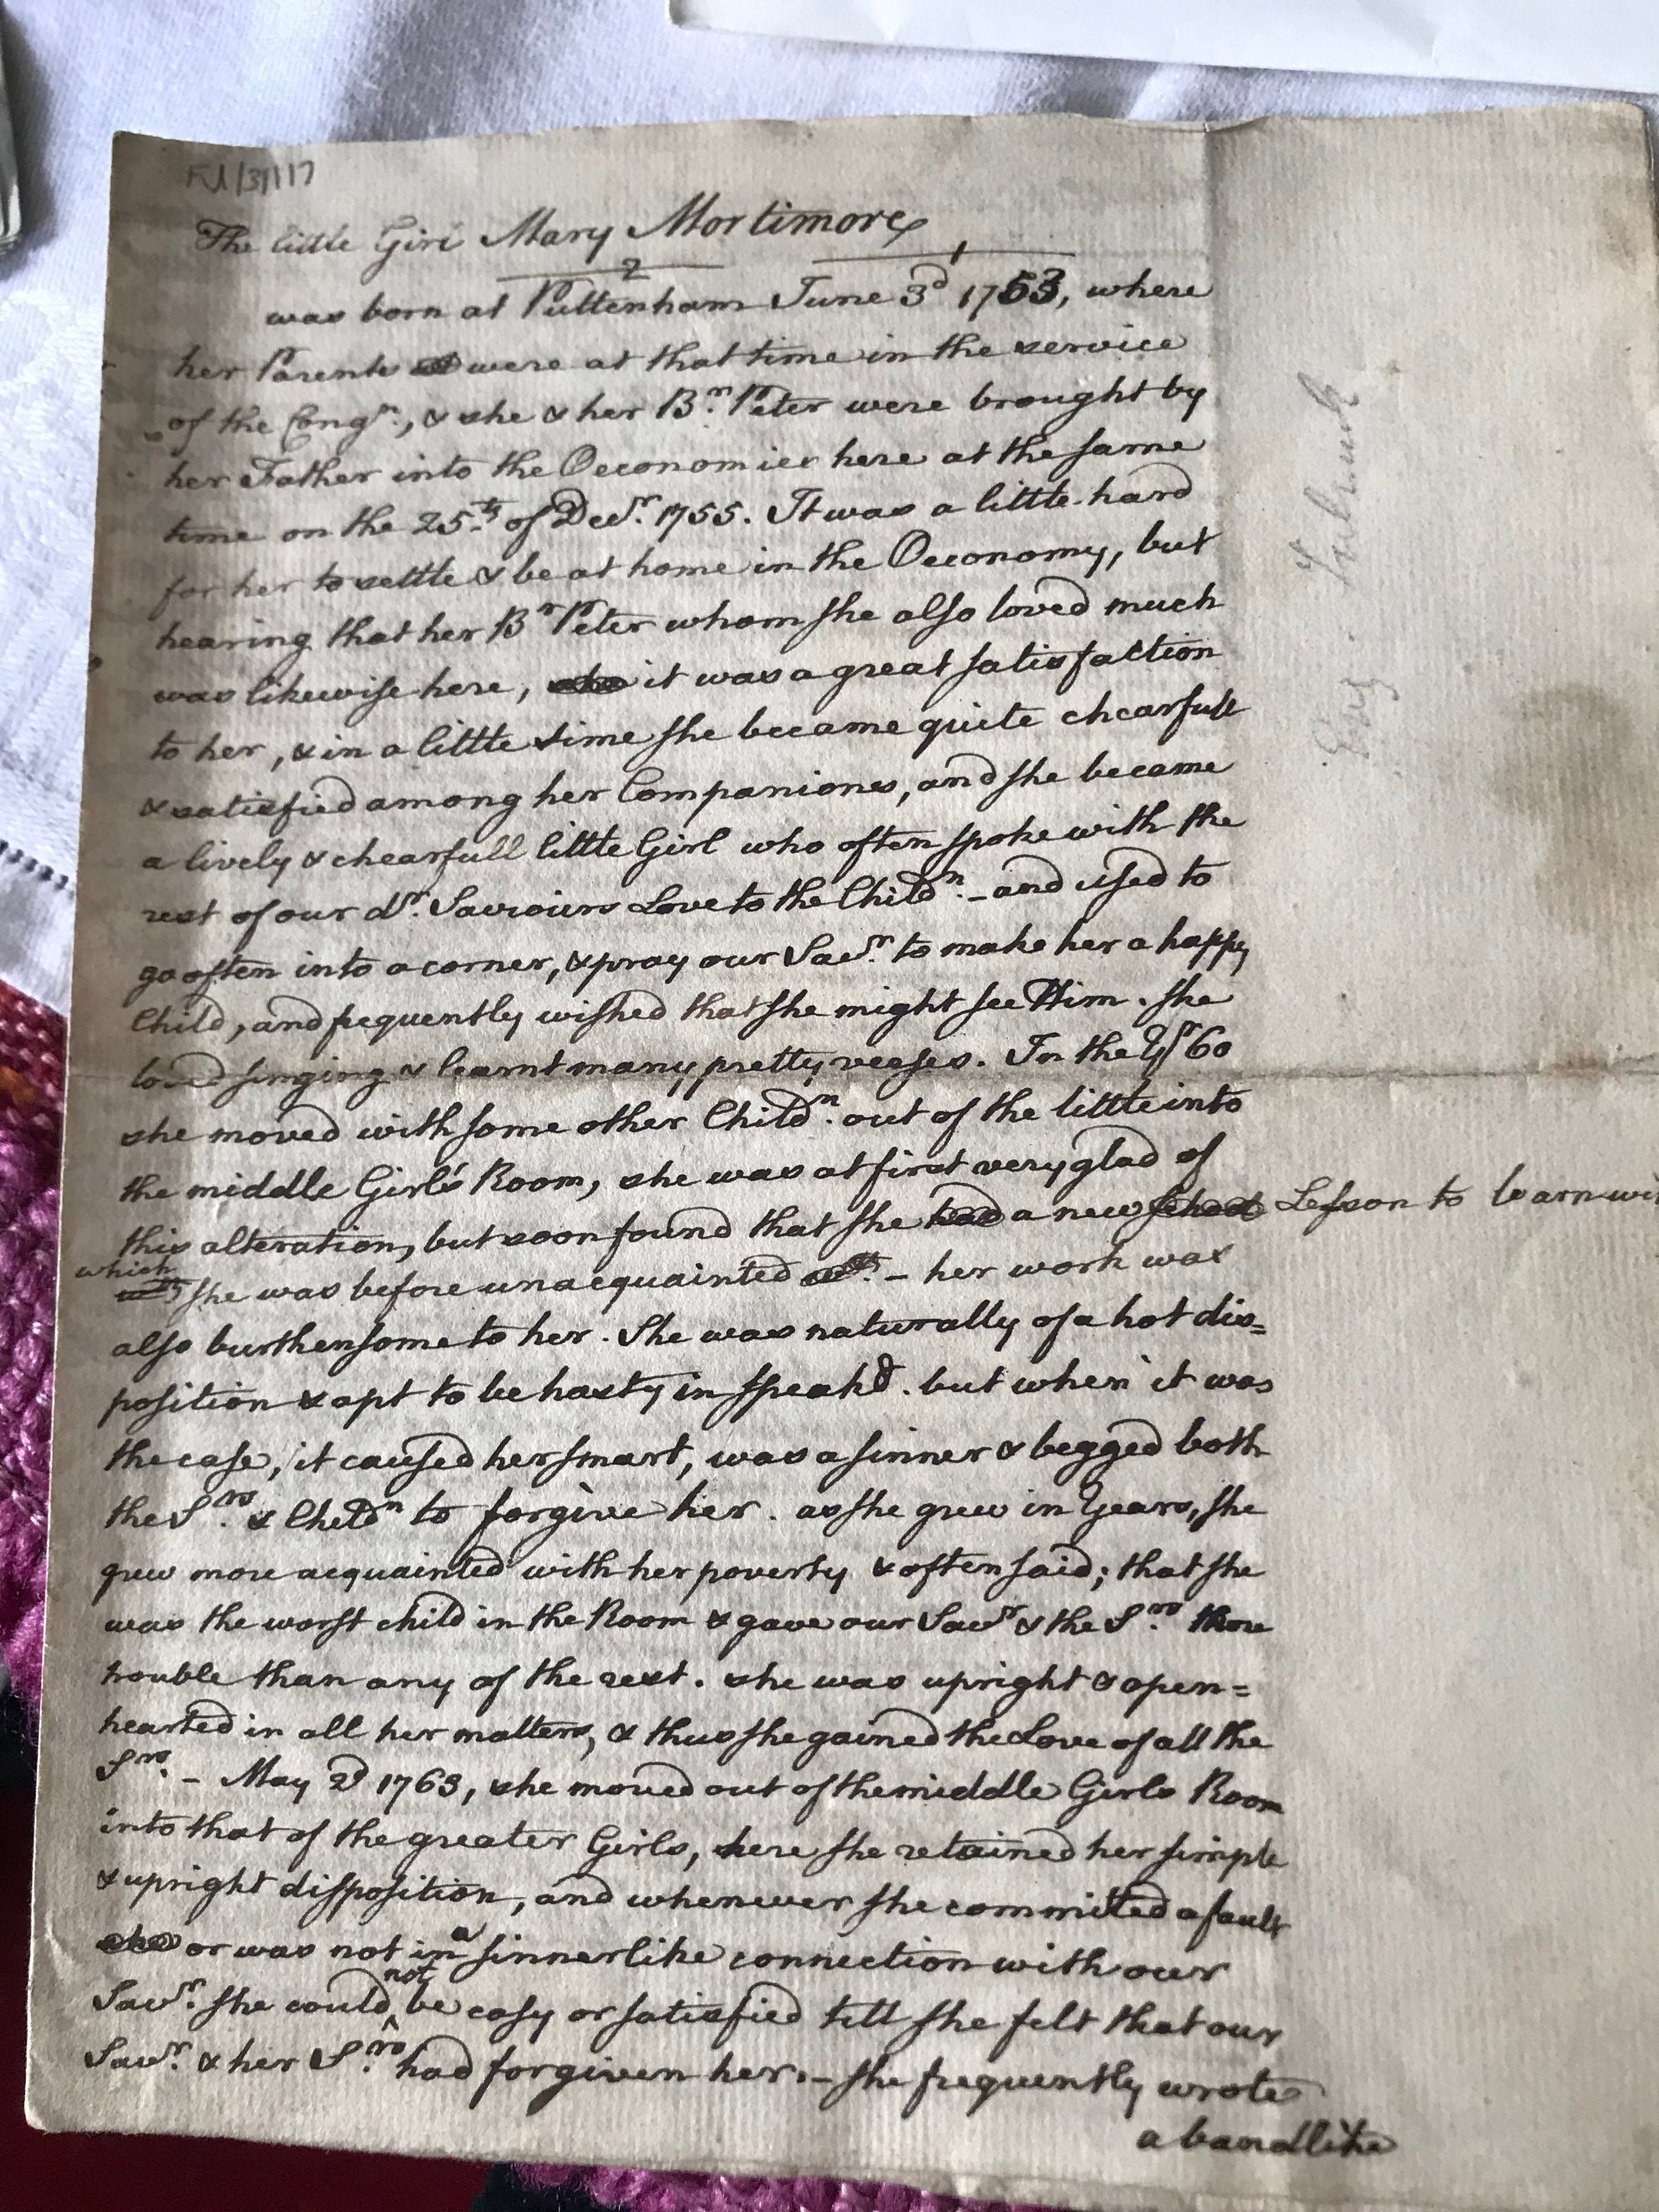 The little Girl Mary Mortimore
2 1
was born at Puttenham June 3d 1753, where
her Parents were at that time in the service
of the Congn., & she & her Br. Peter were brought by
her Father into the Oeconomies here at the same
time on the 25th of Decr. 1755. It was a little hard
for her to settle & be at home in the Oeconomy, but
hearing that her Br Peter whom she also loved much
was likewise here, it was a great satisfaction
to her, & in a little time she became quite chearfull
& satisfied among her Companiones, and she became
a lively & chearfull little Girl who often spoke with the
rest of our dr. Saviours Love to the Childn. - and used to
go often into a corner, & pray our Savr. to make her a happy
Child, and frequently wished that she might see Him. She
loved singing & learnt many pretty verses. In the Yr 60
she moved with some other Childn. out of the little into
the middle Girls' Room, she was at first very glad of
this alteration, but soon found that she had a new Lesson to learn wi
which
she was before unacquainted - her work was
also burthensome to her. She was naturally of a hot dis=
position & apt to be hasty in speakg. but when it was
the case, it caused her smart, was a sinner & begged both
the Srs. & Childn to forgive her. as she grew in Years, she
grew more acquainted with her poverty & often said; that she
was the worst child in the Room & gave our Savr & the Srs. more
trouble than any of the rest. she was upright & open=
hearted in all her matters, & thus she gained the Love of all the
Srs. - May 2d 1763, she moved out of the middle Girls Room
into that of the greater Girls, here she retained her simple
& upright disposition, and whenever she committed a fault
or was not in a sinnerlike connection with our
Savr. she could not be easy or satisfied till she felt that our
Savr. & her Srs. had forgiven her. - she frequently wrote
a bandlike